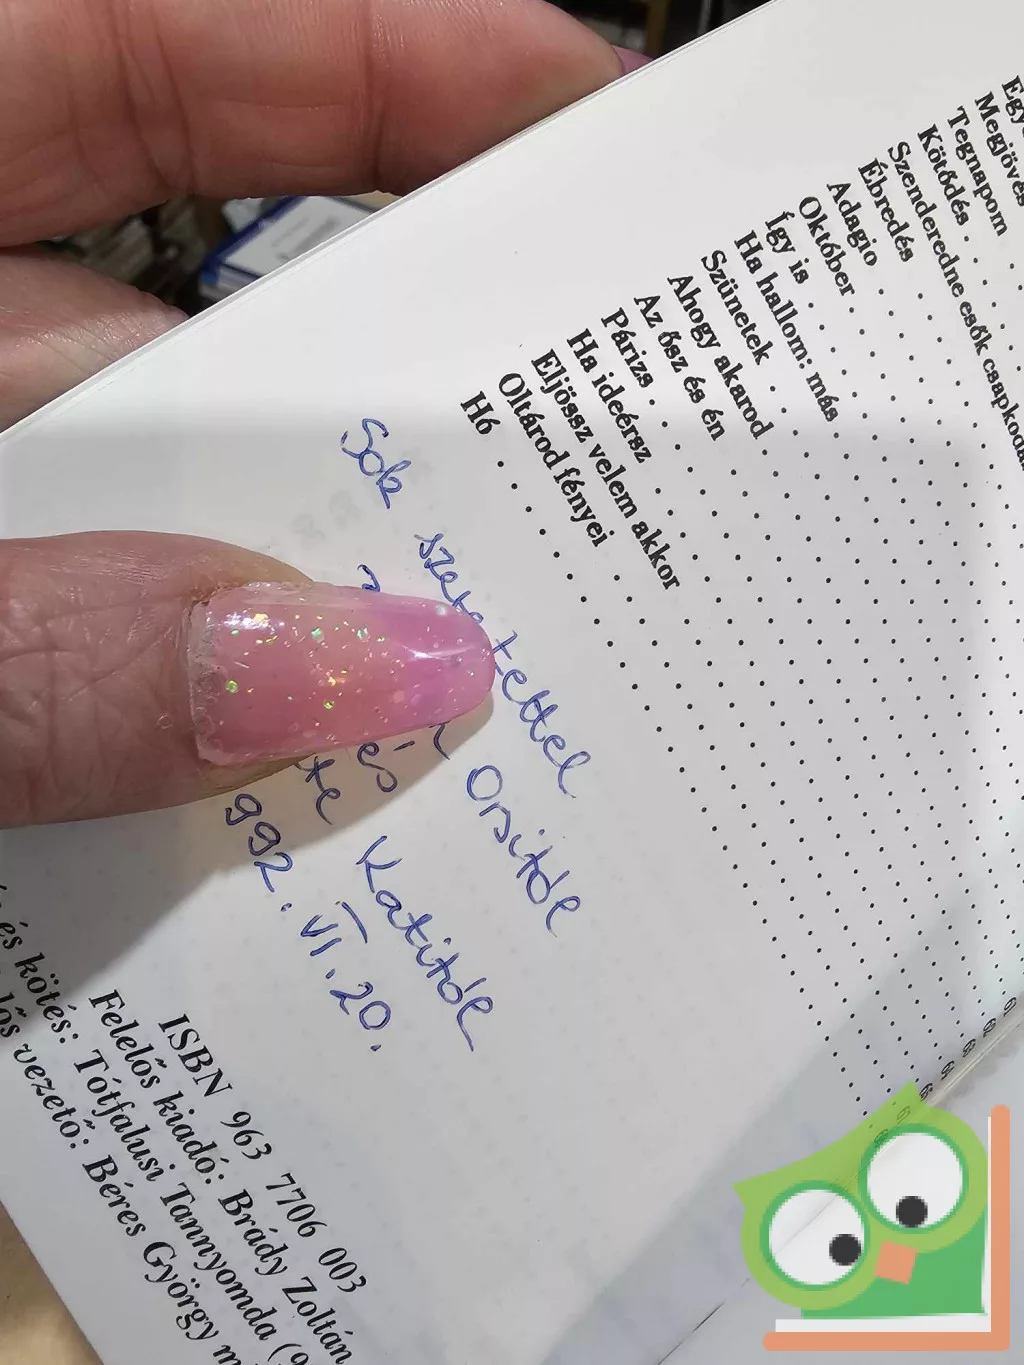 Megjövés
Tegnapom
Kötődés . . .
Szenderedne esők csapkodá
Ébredés
Adagio
Október
Így is
Ha hallom: más
Szünetek
Ahogy akarod
Az ősz és én
Párizs
Ha ideérsz
Eljössz velem akkor
Oltárod fényei
Hó
Sok szeretettel
Orsitól
és
Katitól
992. VI. 20.
ISBN 963 7706 003
Felelős kiadó: Brády Zoltán
és kötés: Tótfalusi Tannyomda (9
vezető: Béres György